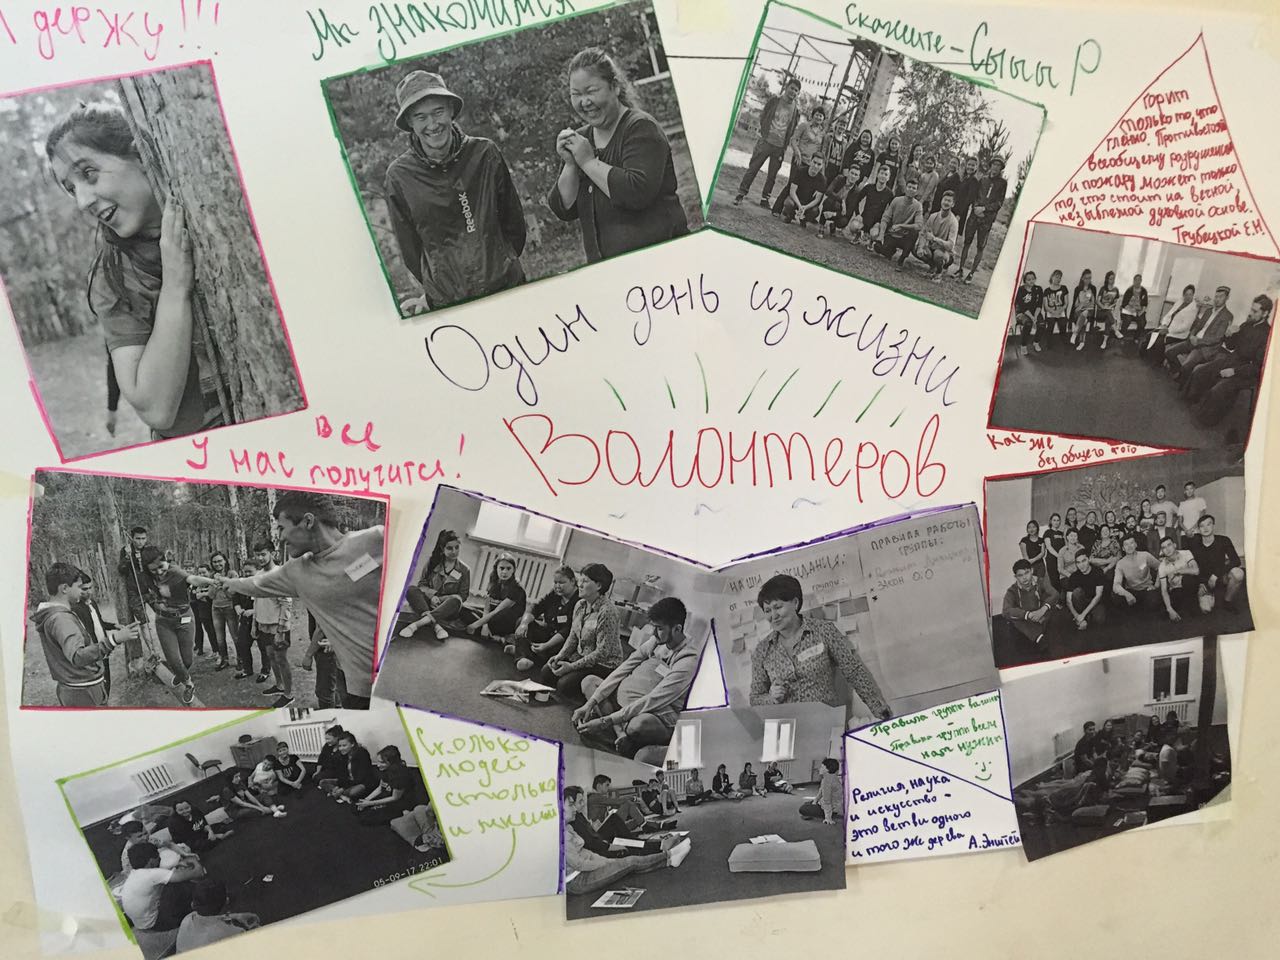 Я держу!!!
Мы знакомимся
скажите - Сыыы Р
Горит
только то, что
тленно. Противостоять
всеобщему разрушению
и пожару может только
то, что стоит на вечной
незыблемой духовной основе.
Трубецкой Е.Н.
Reebok
Один день из жизни
Волонтеров
Все
У нас получится!
Как же
без общего фото
НАШИ ОЖИДАНИЯ:
ОТ
ГРУППЫ:
ПРАВИЛА РАБОТЫ
ГРУППЫ:
ЗАКОН О.О
Сколько
людей
столько
и мнений
05-09-17 22:01
Правила групп важны
Правила групп всем
нам нужны
Религия, наука
и искусство -
это ветви одного
и того же дерева
А. Энштейн